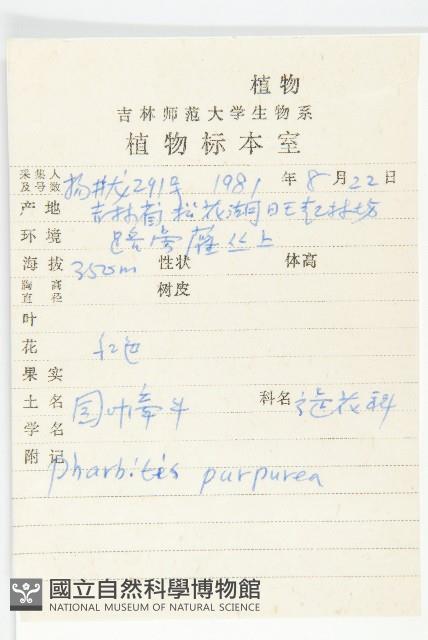 植物
吉林师范大学生物系
植物标本室
采集人及号数 291号 1981年8月22日
产地 吉林省 松花湖 林场
环境 路旁灌丛上
海拔 350m 性状 体高
胸高直径 树皮
叶
花 红色
果实
土名 园叶牵牛 科名 旋花科
学名
附记 Pharbitis purpurea
國立自然科學博物館
NATIONAL MUSEUM OF NATURAL SCIENCE